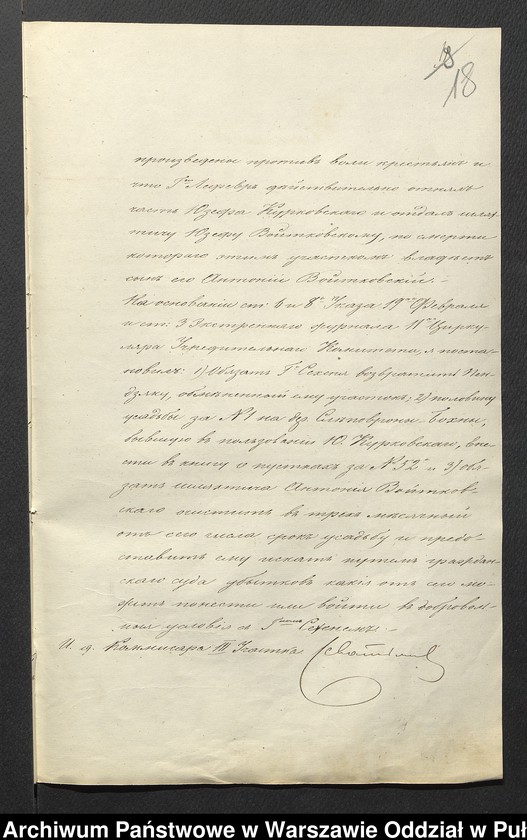 18
18
произведены противъ воли крестьянъ и
что Гнъ Лефевръ дѣйствительно отнялъ
часть Юзефа Курковскаго и отдалъ шлях
тичу Юзефу Войтковскому, по смерти
котораго этимъ участкомъ владѣетъ
сынъ его Антоній Войтковскій. –
На основаніи ст: 6 и 8й Указа 19го Февраля
и ст: 3 Экстреннаго журнала 11го Цирку-
ляра Учредительнаго Комитета, я поста-
новилъ: 1) Обязать Г Сехеня возвратить
дзяку, обмѣненный ему участокъ; 2) половину
усадьбы за №1 на дер
бывшую въ пользованіи Ю. Курковскаго, вне-
сти въ книгу о пусткахъ за №52й и 3) обя-
зать шляхтича Антонія Войтков-
скаго очистить въ трехъ мѣсячный
отъ сего числа срокъ усадьбу и предо-
ставить ему искать путемъ граждан-
скаго суда убытковъ какіе отъ сего мо-
жетъ понести или войти въ доброволь-
ныя условія съ Гномъ Сехенемъ. –
И. д. Коммисара III Участка
Archiwum Państwowe w Warszawie Oddział w Puł